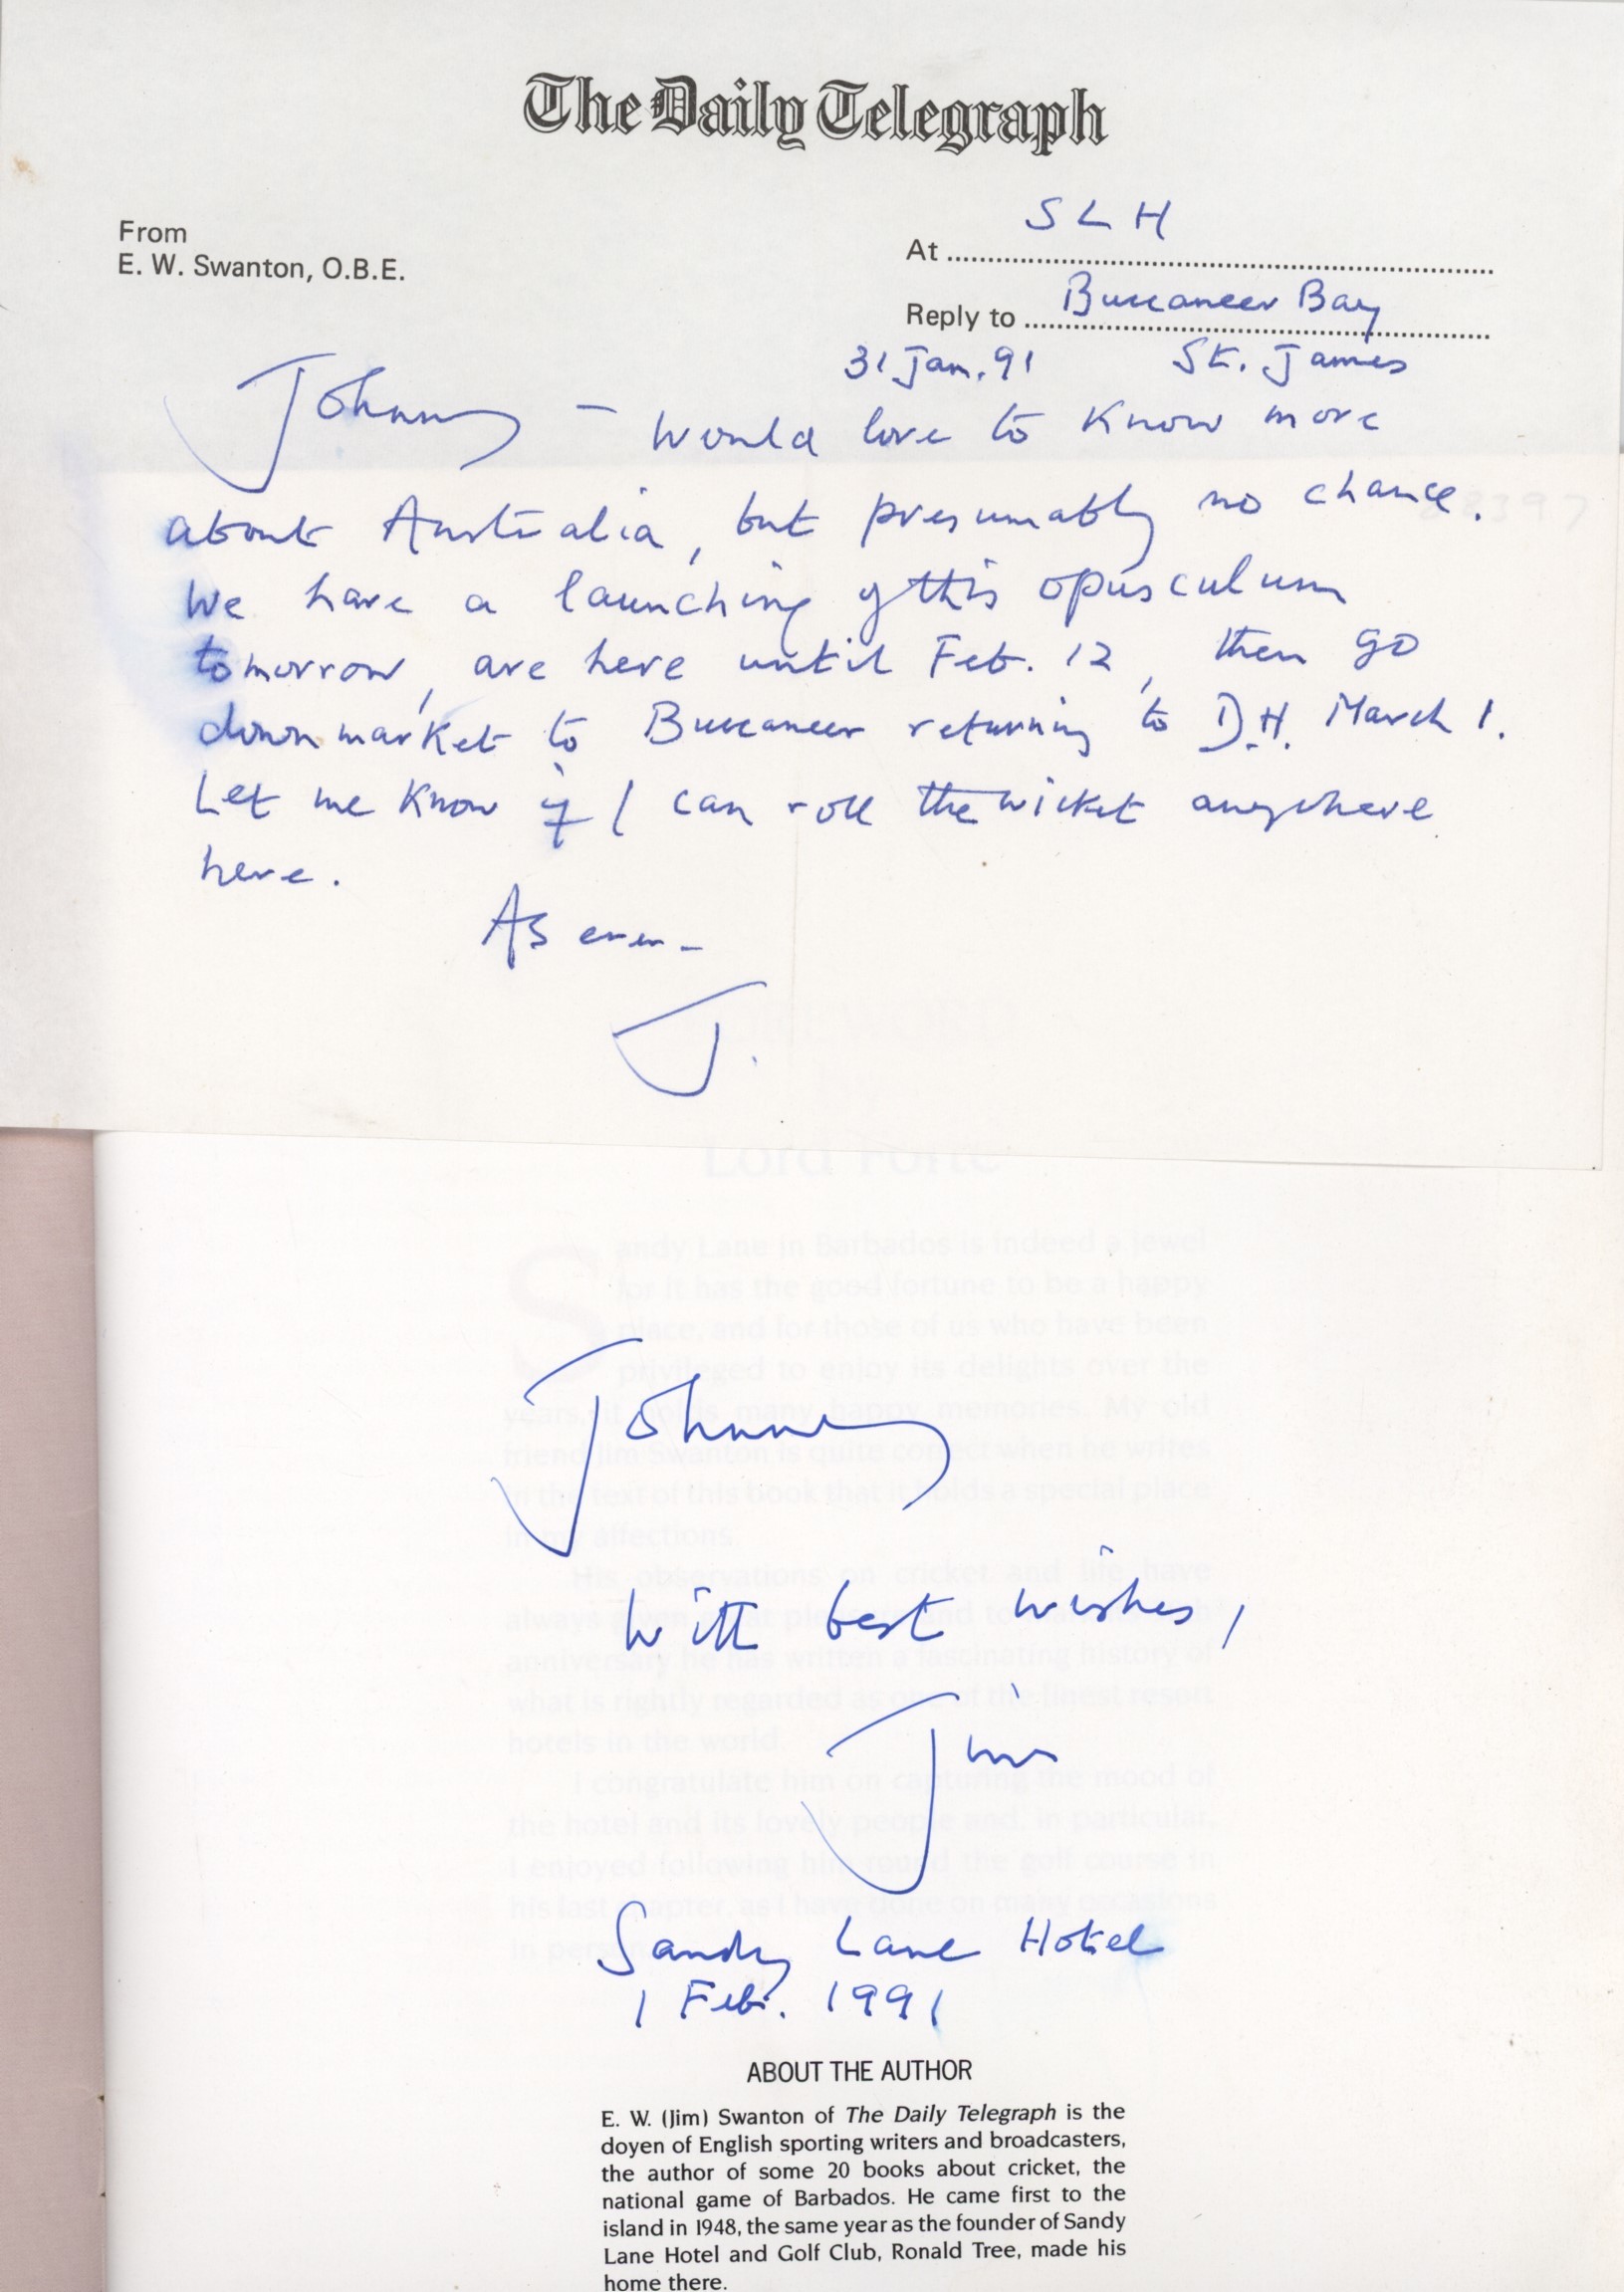 The Daily Telegraph
From
E. W. Swanton, O.B.E.
At S L H
Reply to Buccaneer Bay
31 Jan. 91 St. James
Johnny – Would love to know more
about Australia, but presumably no chance.
We have a launching of this opusculum
tomorrow, are here until Feb. 12, then go
down market to Buccaneer returning to D.H. March 1.
Let me know if I can roll the wicket anywhere
here.
As ever –
J.
Lord Forte
Sandy Lane in Barbados is indeed a jewel
for it has the good fortune to be a happy
place, and for those of us who have been
privileged to enjoy its delights over the
years, it holds many happy memories. My old
friend Jim Swanton is quite correct when he writes
in the text of this book that it holds a special place
in my affections.
His observations on cricket and life have
always given great pleasure and to
anniversary he has written a fascinating history of
what is rightly regarded as one of the finest resort
hotels in the world.
I congratulate him on capturing the mood of
the hotel and its lovely people and, in particular,
I enjoyed following him round the golf course in
his last chapter, as I have done on many occasions
in person.
Johnny
With best wishes,
Jim
Sandy Lane Hotel
1 Feb. 1991
ABOUT THE AUTHOR
E. W. (Jim) Swanton of The Daily Telegraph is the
doyen of English sporting writers and broadcasters,
the author of some 20 books about cricket, the
national game of Barbados. He came first to the
island in 1948, the same year as the founder of Sandy
Lane Hotel and Golf Club, Ronald Tree, made his
home there.